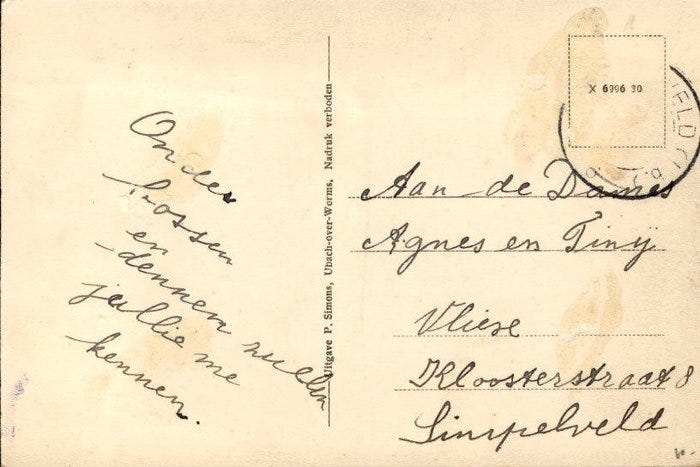 Onder
bossen
en
dennen zullen
jullie me
kennen.
Uitgave P. Simons, Ubach-over-Worms, Nadruk verboden
X 6996 30
ELD (L
Aan de Dames
Agnes en Tiny
Vliexe
Kloosterstraat 8
Simpelveld